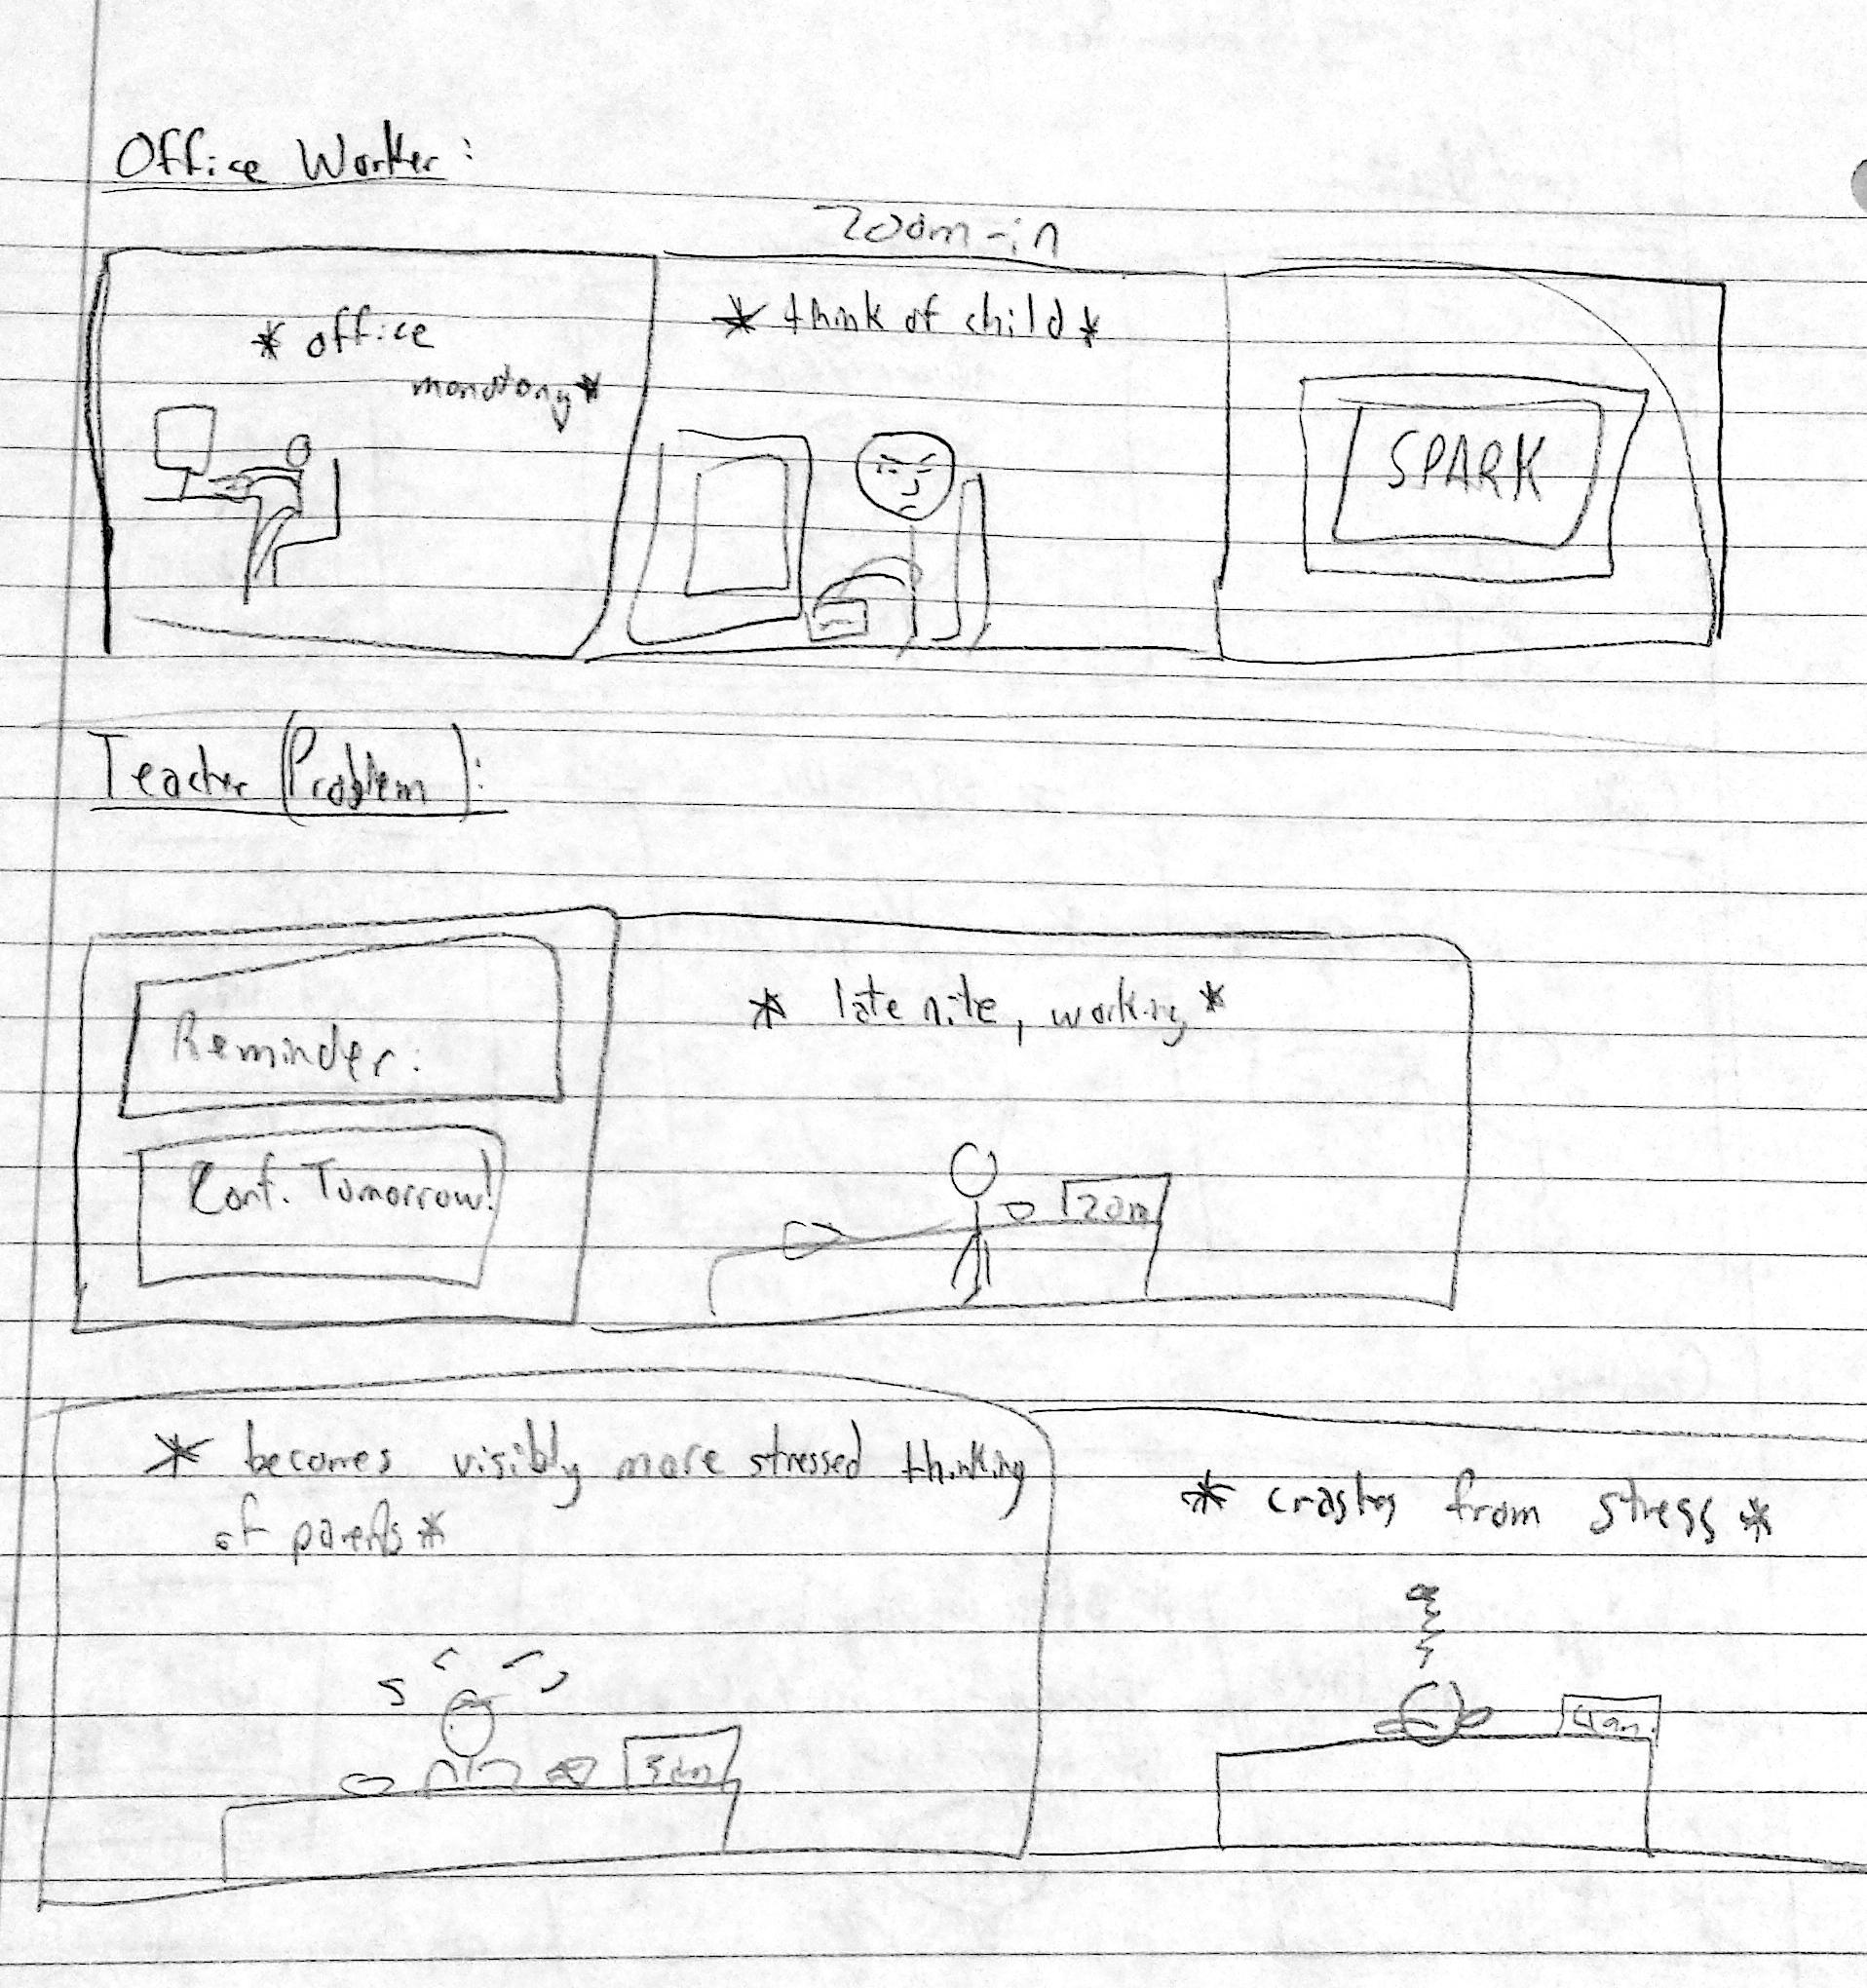 Office Worker:
Zoom-in
* office
monotony*
* think of child *
SPARK
Teacher (Problem):
Reminder:
Conf. Tomorrow!
* late nite, working *
2am
* becomes visibly more stressed thinking
of parents *
3am
* crashes from stress *
4am